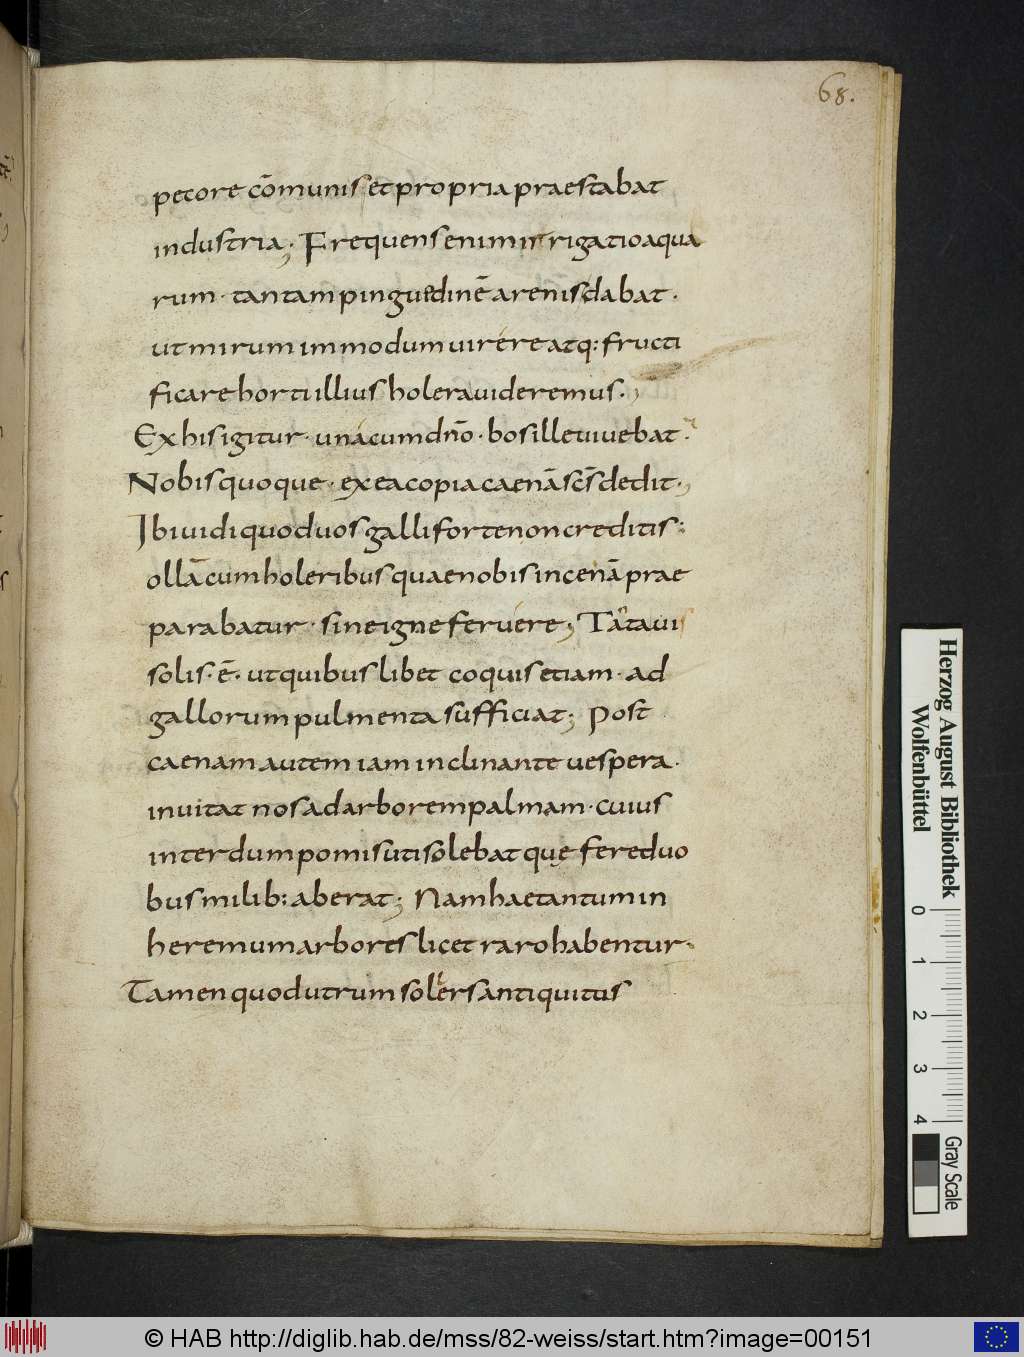 68.
petore cōmunis et propria praestabat
industria; Frequens enim irrigatio aqua
rum · tantam pinguedinē arenis dabat ·
ut mirum immodum uirere atq: fructi
ficare horti illius holera uideremus ·,
Ex his igitur · una cum dn̄o · bos ille uiuebat ·
Nobis quoque · ex ea copia caenā sc̄s dedit ·,
Ibi uidi quod uos galli forte non creditis :
ollā cum holeribus quae nobis in cenā prae
parabatur · sine igne feruere; Tāta uis
solis · ē · ut quibuslibet coquis etiam · ad
gallorum pulmenta sufficiat; Post
caenam autem iam inclinante uespera ·
inuitat nos ad arborem palmam · cuius
interdum pomis uti solebat que fere duo
bus milib: aberat; Nam hae tantum in
heremum arbores licet raro habentur ·
Tamen quod utrum solers antiquitus
Herzog August Bibliothek
Wolfenbüttel
0 1 2 3 4
Gray Scale
© HAB http://diglib.hab.de/mss/82-weiss/start.htm?image=00151